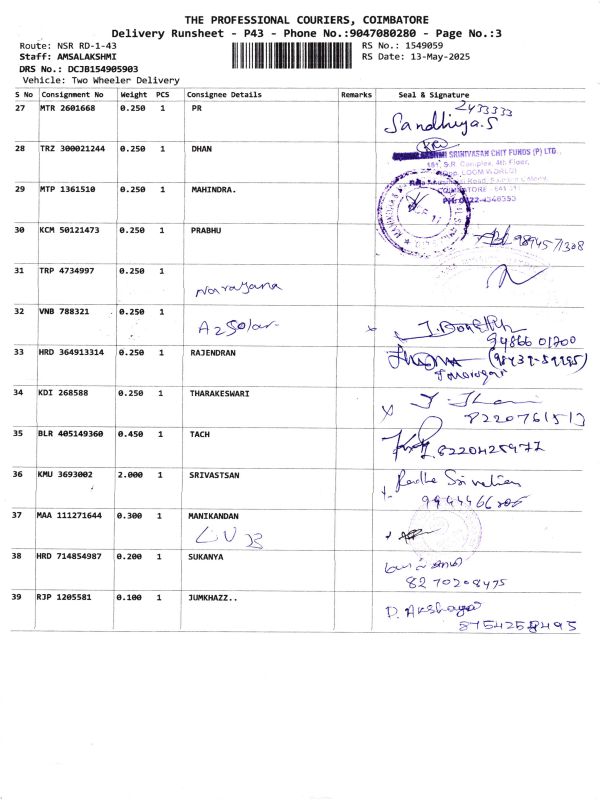 THE PROFESSIONAL COURIERS, COIMBATORE
Delivery Runsheet - P43 - Phone No.:9047080280 - Page No.:3
Route: NSR RD-1-43
RS No.: 1549059
Staff: AMSALAKSHMI
RS Date: 13-May-2025
DRS No.: DCJB154905903
Vehicle: Two Wheeler Delivery
S No Consignment No Weight PCS Consignee Details Remarks Seal & Signature
27 MTR 2601668 0.250 1 PR
2433333
Sandhiya.S
28 TRZ 300021244 0.250 1 DHAN
SRINIVASAN CHIT FUNDS (P) LTD.,
Complex, 4th Floor,
29 MTP 1361510 0.250 1 MAHINDRA.
30 KCM 50121473 0.250 1 PRABHU
9894571308
31 TRP 4734997 0.250 1
Narayana
32 VNB 788321 0.250 1
A2 Solar
94866 01700
33 HRD 364913314 0.250 1 RAJENDRAN
34 KDI 268588 0.250 1 THARAKESWARI
8220761513
35 BLR 405149360 0.450 1 TACH
8220425977
36 KMU 3693002 2.000 1 SRIVASTSAN
Radhe
37 MAA 111271644 0.300 1 MANIKANDAN
38 HRD 714854987 0.200 1 SUKANYA
8270208475
39 RJP 1205581 0.100 1 JUMKHAZZ..
D. Akshaya